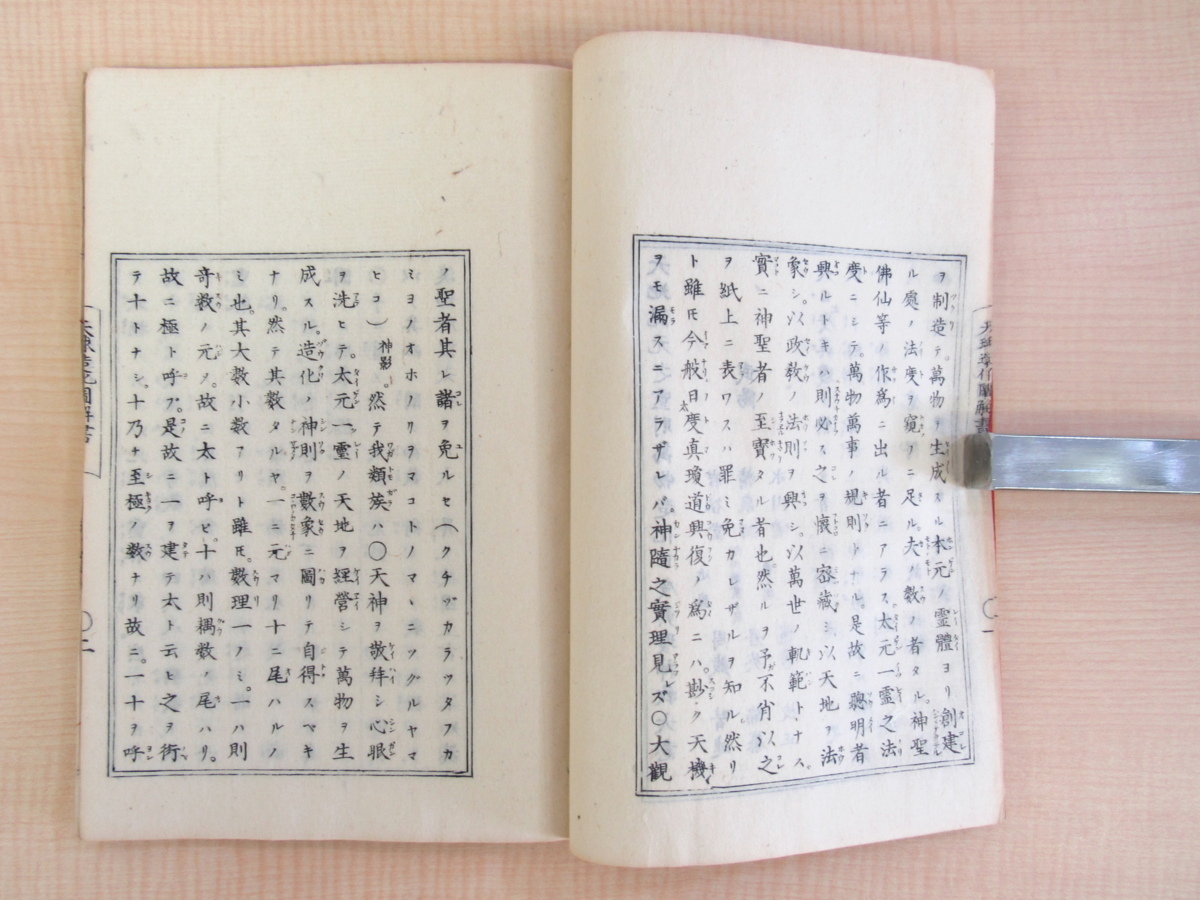 ヲ制造テ萬物ヲ生成スル本元ノ靈體ヨリ創建
ル處ノ法度ヲ窺フニ足ル。夫ノ數ノ者タル。神聖
佛仙等ノ作爲ニ出ル者ニアラス。太元一靈之法
度ニシテ。萬物萬事ノ規則トナル。是故ニ聰明者
興ルトキハ則必ス之ヲ懷ニ密藏シ以天地ヲ法
象シ。以政敎ノ法則ヲ興シ。以萬世ノ軌範トナス。
實ニ神聖者ノ至寶タル者也。然ルヲ予不肖以之
ヲ紙上ニ表ワスハ罪ミ免カレザルヲ知ル。然リ
ト雖𪜈今般日度眞瓊道興復ノ爲ニハ。尠ク天機
太
ヲモ漏スニアラザレバ神隨之實理見レズ〇大觀
ノ聖者其レ諸ヲ免ルセ(クチヅカラツタフカ
ミヨノオホノリヲマコトノマヽニツグルヤマ
ヒコ)神影。然テ我類族ハ〇天神ヲ敬拜シ心眼
ヲ洗ヒテ。太元一靈ノ天地ヲ經營シテ萬物ヲ生
成スル。造化ノ神則ヲ數象ニ圖リテ自得スベキ
ナリ。然テ其數タルヤ。一ニ元マリ十ニ尾ハルノ
ミ也。其大數小數アリト雖𪜈。數理一ノミ。一ハ則
奇數ノ元ノ。故ニ太ト呼ヒ。十ハ則耦數ノ尾ハリ。
故ニ極ト呼ブ。是故ニ一ヲ建テ太ト云ヒ之ヲ術
テ十トナシ。十乃チ至極ノ數ナリ故ニ。一十ヲ呼
二
一